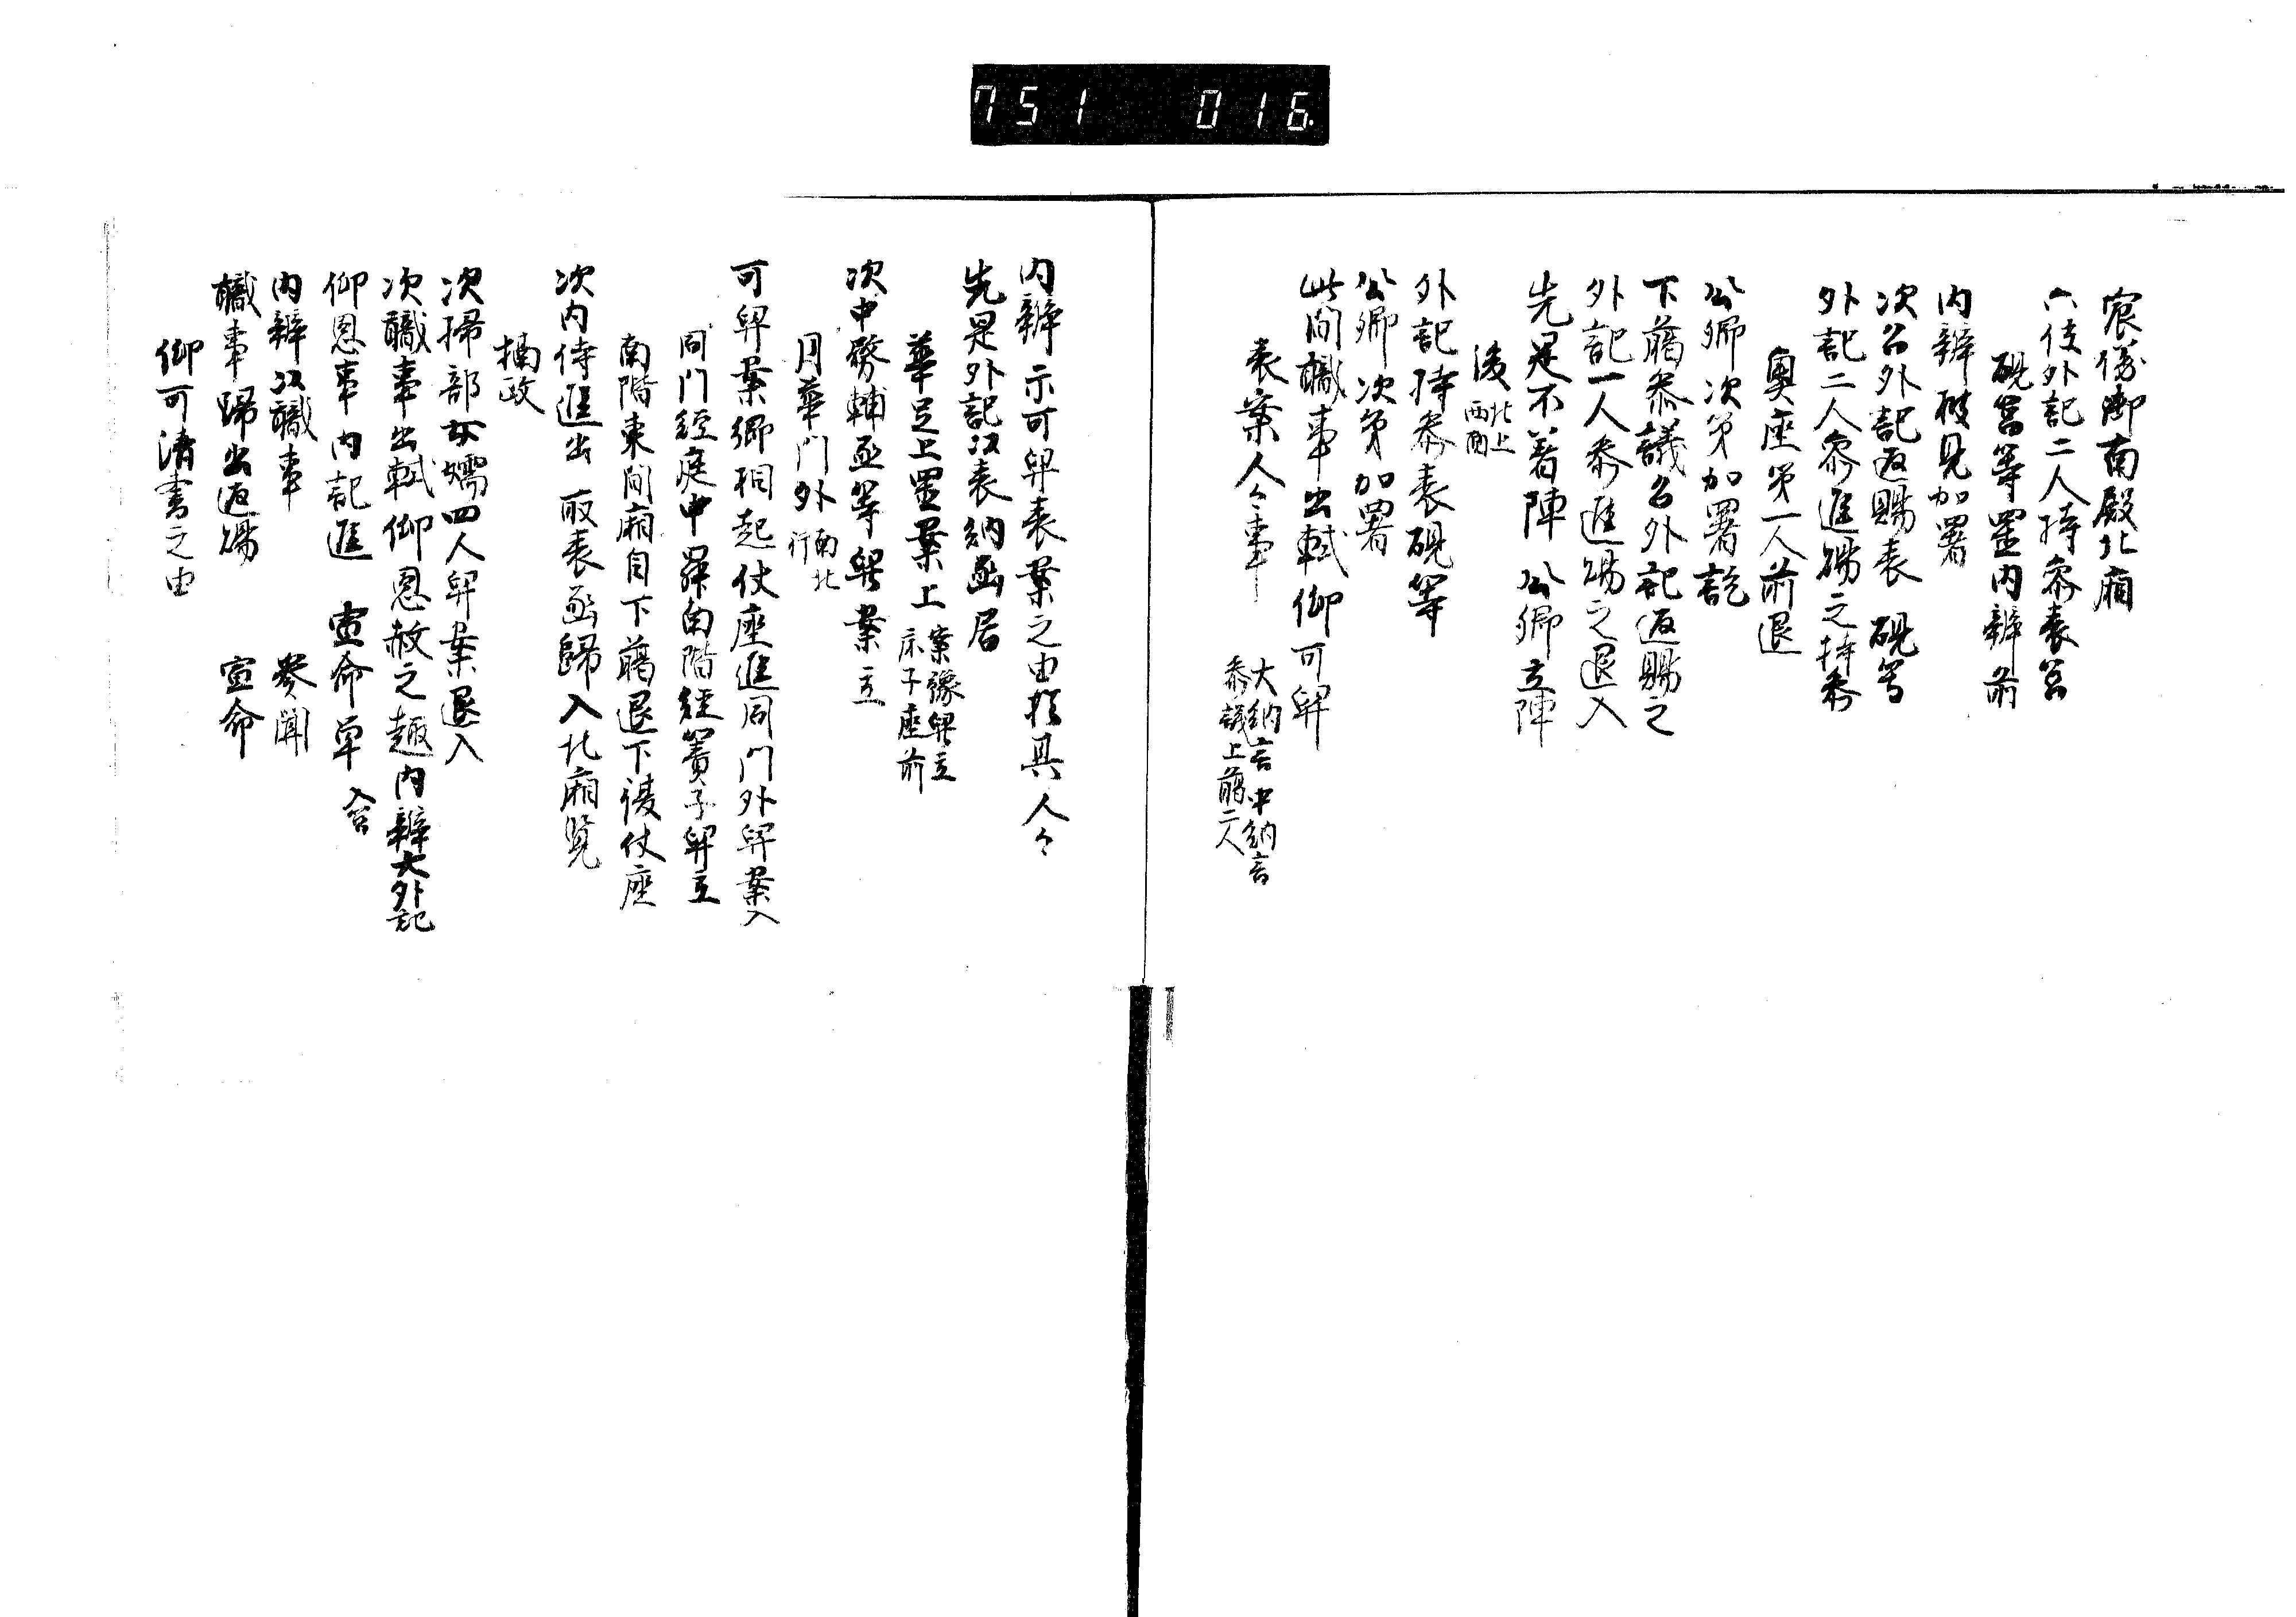 751 016
宸儀御南殿北廂
六位外記二人持参表筥
硯筥等置内辨前
内辨披見加署
次召外記返賜表硯等
外記二人参進賜之持参
奥座第一人前退
公卿次第加署訖
下﨟参議召外記返賜之
外記一人参進賜之退入
先是不著陣公卿立陣
後 北上西面
外記持参表硯等
公卿次第加署
此間職事出軾仰可舁
表案人々事 大納言中納言参議上﨟二人
内辨示可舁表案之由於具人々
先是外記以表納函居
華足上置案上 案豫舁立床子座前
次中務輔丞等舁案立
月華門外 南北行
可舁案卿相起仗座進同門外舁案入
同門経庭中昇南階経簀子舁立
南階東間廂自下﨟退下復仗座
次内侍進出取表函歸入北廂覧
摂政
次掃部女嬬四人舁案退入
次職事出軾仰恩赦之趣内辨大外記
仰恩事内記進 宣命草 入筥
内辨以職事 奏聞
職事歸出返賜 宣命
仰可清書之由